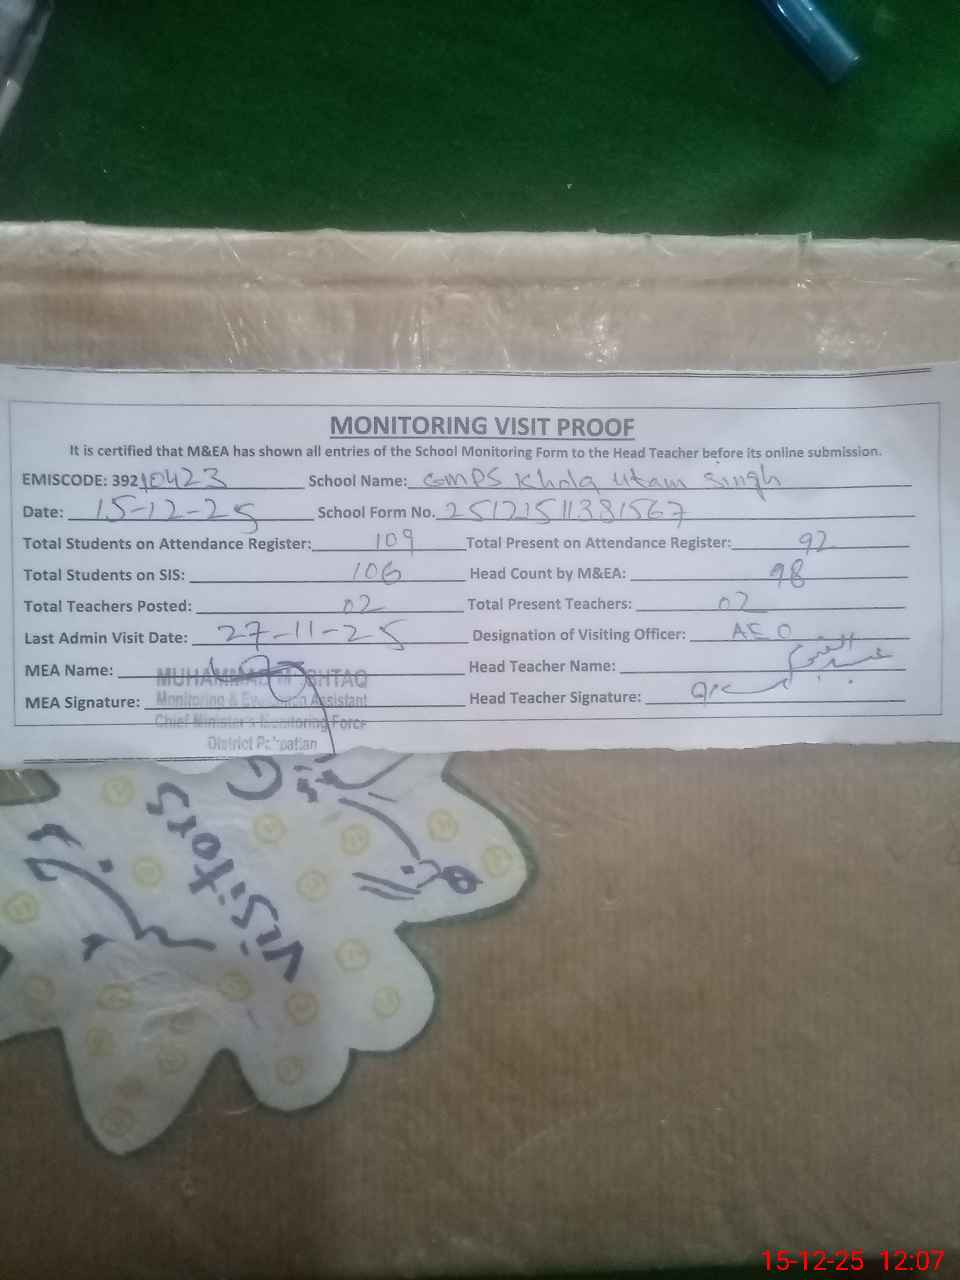 MONITORING VISIT PROOF
It is certified that M&EA has shown all entries of the School Monitoring Form to the Head Teacher before its online submission.
EMISCODE: 39210423 School Name: GMPS Khola Utam Singh
Date: 15-12-25 School Form No. 25121511381567
Total Students on Attendance Register: 109 Total Present on Attendance Register: 92
Total Students on SIS: 106 Head Count by M&EA: 98
Total Teachers Posted: 02 Total Present Teachers: 02
Last Admin Visit Date: 27-11-25 Designation of Visiting Officer: AEO
MEA Name: MUHAMMAD MUSHTAQ Head Teacher Name:
MEA Signature: Monitoring & Evaluation Assistant Head Teacher Signature:
Chief Minister's Monitoring Force
District Pakpattan
Visitors
15-12-25 12:07